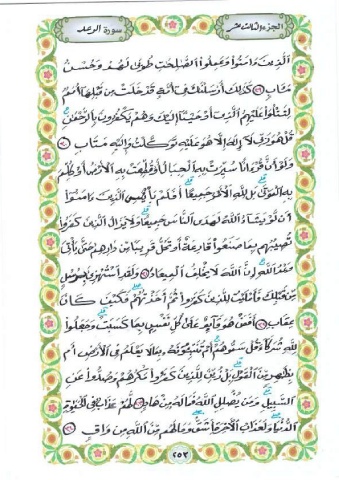 الجزء الثالث عشر
سورة الرعد
الذين ءامنوا وعملوا الصلحت طوبى لهم وحسن
مئاب ٢٩ كذلك أرسلنك في أمة قد خلت من قبلها أمم
لتتلوا عليهم الذي أوحينا إليك وهم يكفرون بالرحمن
قل هو ربي لا إله إلا هو عليه توكلت وإليه متاب ٣٠
ولو أن قرءانا سيرت به الجبال أو قطعت به الأرض أو كلم
به الموتى بل لله الأمر جميعا أفلم يايئس الذين ءامنوا
أن لو يشاء الله لهدى الناس جميعا ولا يزال الذين كفروا
تصيبهم بما صنعوا قارعة أو تحل قريبا من دارهم حتى يأتي
وعد الله إن الله لا يخلف الميعاد ٣١ ولقد استهزئ برسل
من قبلك فأمليت للذين كفروا ثم أخذتهم فكيف كان
عقاب ٣٢ أفمن هو قائم على كل نفس بما كسبت وجعلوا
لله شركاء قل سموهم أم تنبئونه بما لا يعلم في الأرض أم
بظهر من القول بل زين للذين كفروا مكرهم وصدوا عن
السبيل ومن يضلل الله فما له من هاد ٣٣ لهم عذاب في الحيوة
الدنيا ولعذاب الأخرة أشق وما لهم من الله من واق ٣٤
٢٥٣